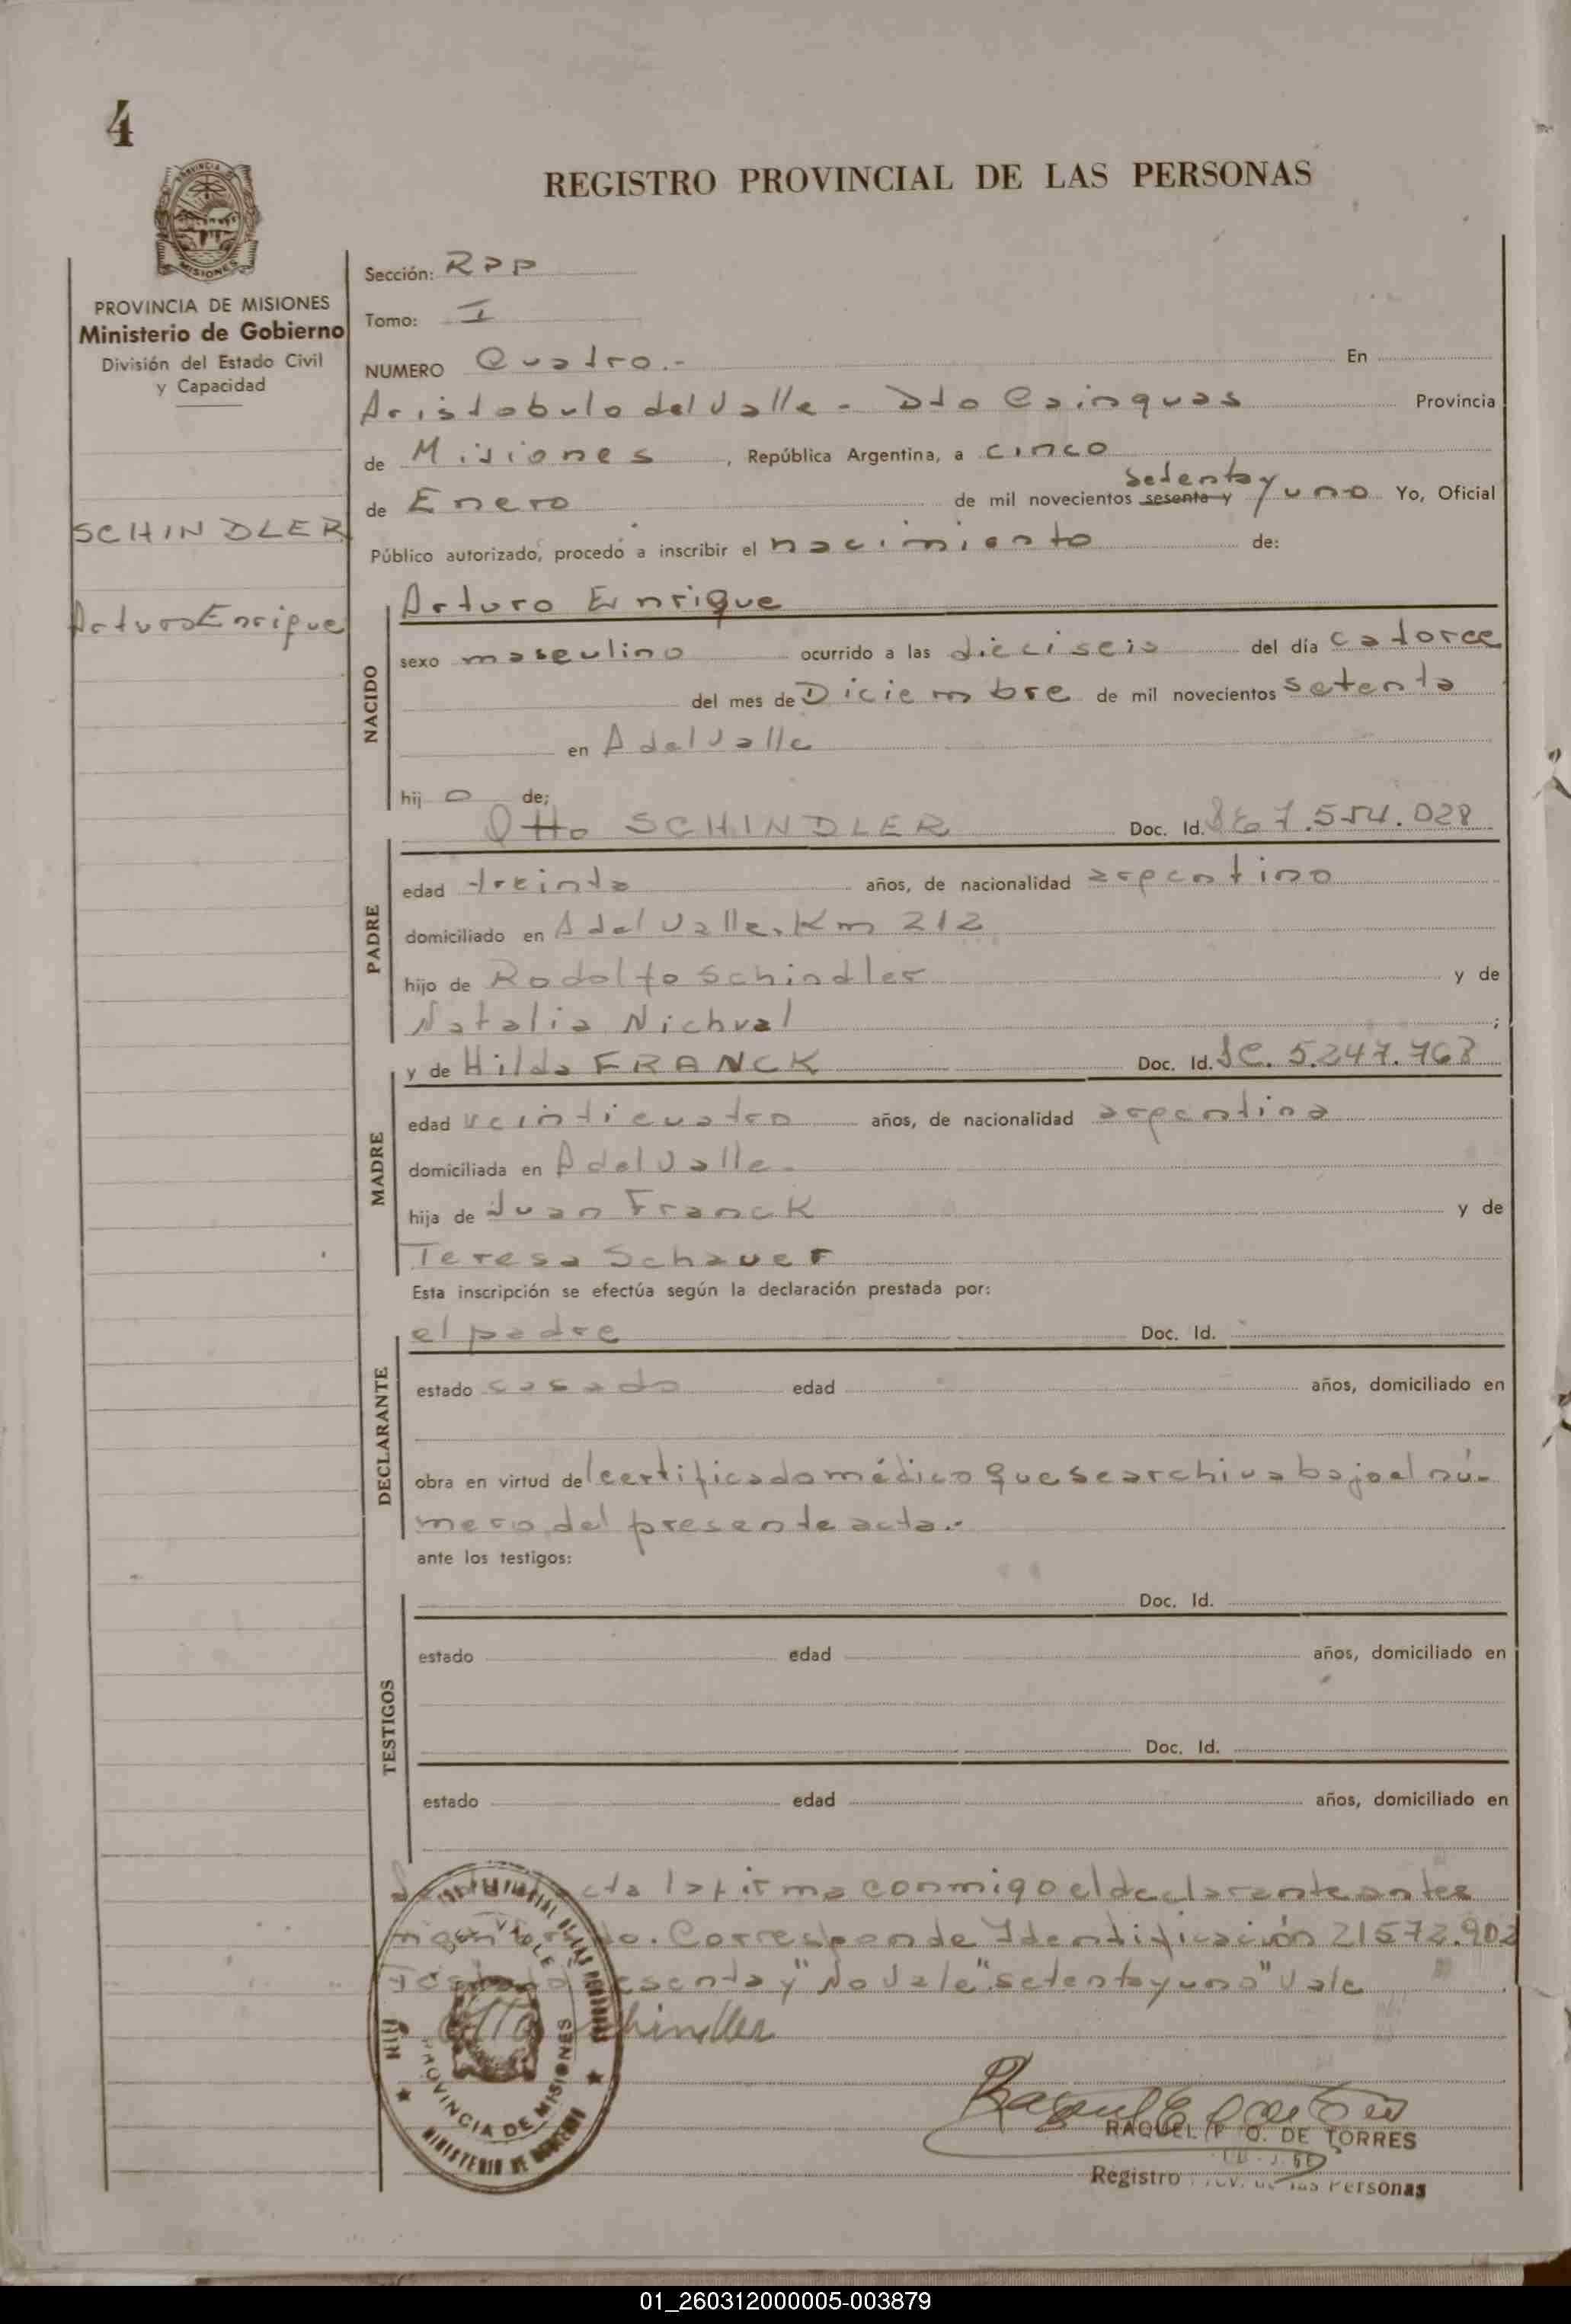 4
REGISTRO PROVINCIAL DE LAS PERSONAS
PROVINCIA DE MISIONES
Ministerio de Gobierno
División del Estado Civil
y Capacidad
SCHINDLER
Arturo Enrique
Sección: RPP
Tomo: I
NUMERO Cuatro.- En
Aristobulo del Valle - Dto Cainguas Provincia
de Misiones, República Argentina, a cinco
setenta y
de Enero de mil novecientos sesenta y uno Yo, Oficial
Público autorizado, procedo a inscribir el nacimiento de:
NACIDO
Arturo Enrique
sexo masculino ocurrido a las dieciseis del día catorce
del mes de Diciembre de mil novecientos setenta
en A del Valle
hijo de;
PADRE
Otto SCHINDLER Doc. Id. 7.554.028
edad treinta años, de nacionalidad argentino
domiciliado en A del Valle. Km 212
hijo de Rodolfo Schindler y de
Natalia Nichval ;
MADRE
y de Hilda FRANCK Doc. Id. 5.247.768
edad veinticuatro años, de nacionalidad argentina
domiciliada en A del Valle.
hija de Juan Franck y de
Teresa Schauer
Esta inscripción se efectúa según la declaración prestada por:
DECLARANTE
el padre Doc. Id.
estado casado edad años, domiciliado en
obra en virtud del certificado médico que se archiva bajo el nú-
mero del presente acta.-
ante los testigos:
TESTIGOS
Doc. Id.
estado edad años, domiciliado en
Doc. Id.
estado edad años, domiciliado en
la firma conmigo el declarante antes
Corresponde Identificación 21572.902
esenta y" No Vale" "setenta y uno" Vale
Otto Schindler
PROVINCIA DE MISIONES
MINISTERIO DE GOBIERNO
RAQUEL P. O. DE TORRES
Registro Prov. de las Personas
01_260312000005-003879